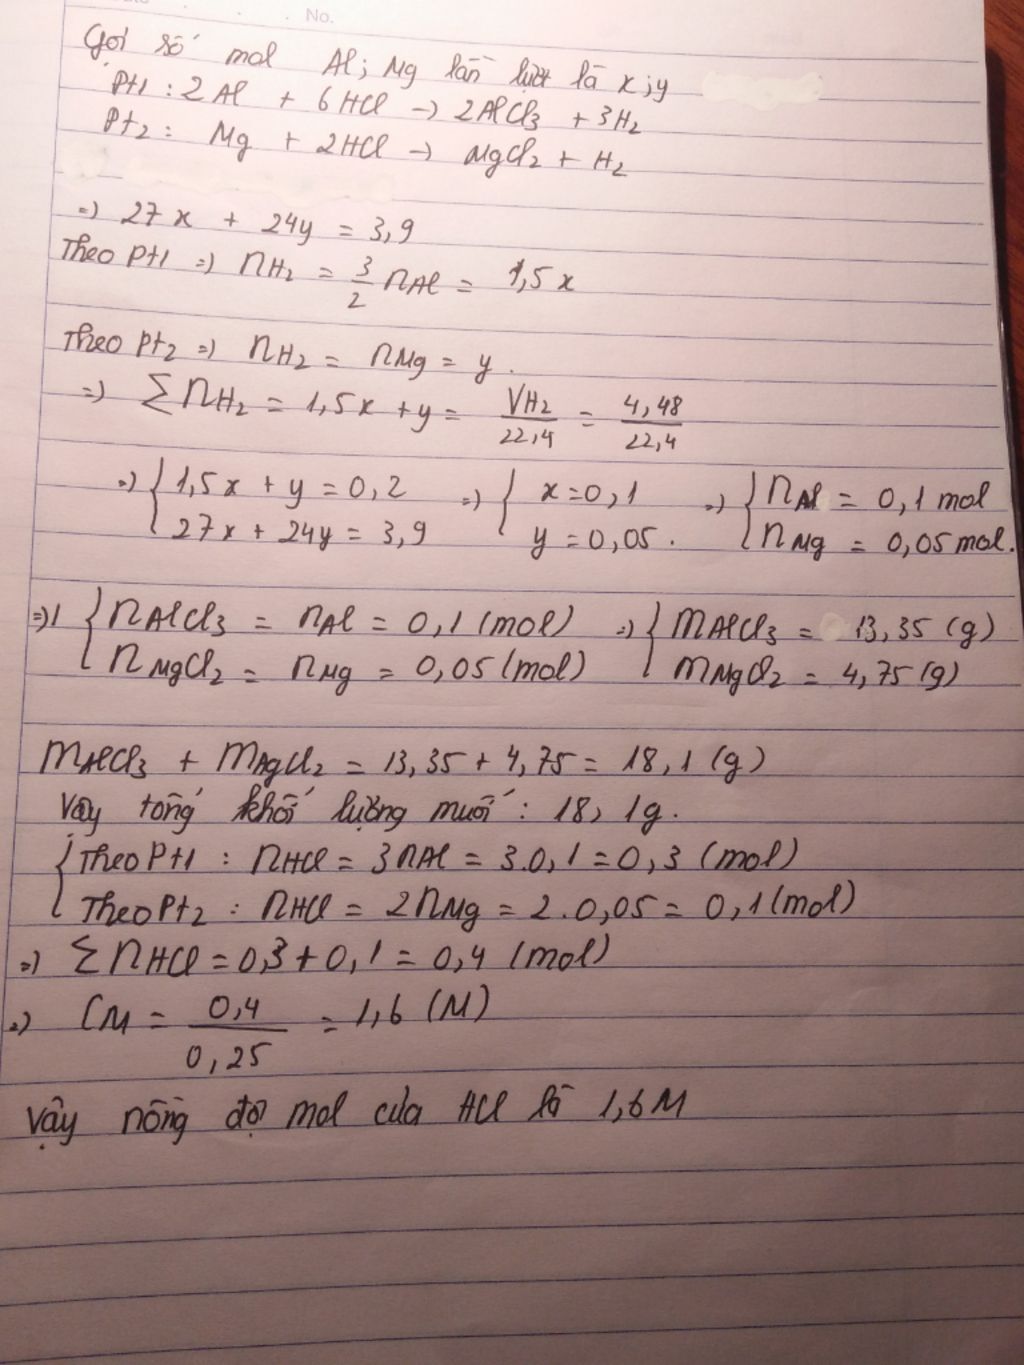 No.
Gọi số mol Al; Mg lần lượt là x;y
Pt1 : 2Al + 6HCl -> 2AlCl3 + 3H2
Pt2 : Mg + 2HCl -> MgCl2 + H2
=> 27x + 24y = 3,9
Theo Pt1 => nH2 = 3/2 nAl = 1,5x
Theo Pt2 => nH2 = nMg = y.
=> ∑nH2 = 1,5x + y = VH2/22,4 = 4,48/22,4
=> { 1,5x + y = 0,2 => { x = 0,1 => { nAl = 0,1 mol
27x + 24y = 3,9 y = 0,05. nMg = 0,05 mol.
=> { nAlCl3 = nAl = 0,1 (mol) => { mAlCl3 = 13,35 (g)
nMgCl2 = nMg = 0,05 (mol) mMgCl2 = 4,75 (g)
mAlCl3 + mMgCl2 = 13,35 + 4,75 = 18,1 (g)
Vậy tổng khối lượng muối : 18,1g.
{ Theo Pt1 : nHCl = 3nAl = 3.0,1 = 0,3 (mol)
Theo Pt2 : nHCl = 2nMg = 2.0,05 = 0,1 (mol)
=> ∑nHCl = 0,3 + 0,1 = 0,4 (mol)
=> CM = 0,4/0,25 = 1,6 (M)
Vậy nồng độ mol của HCl là 1,6M